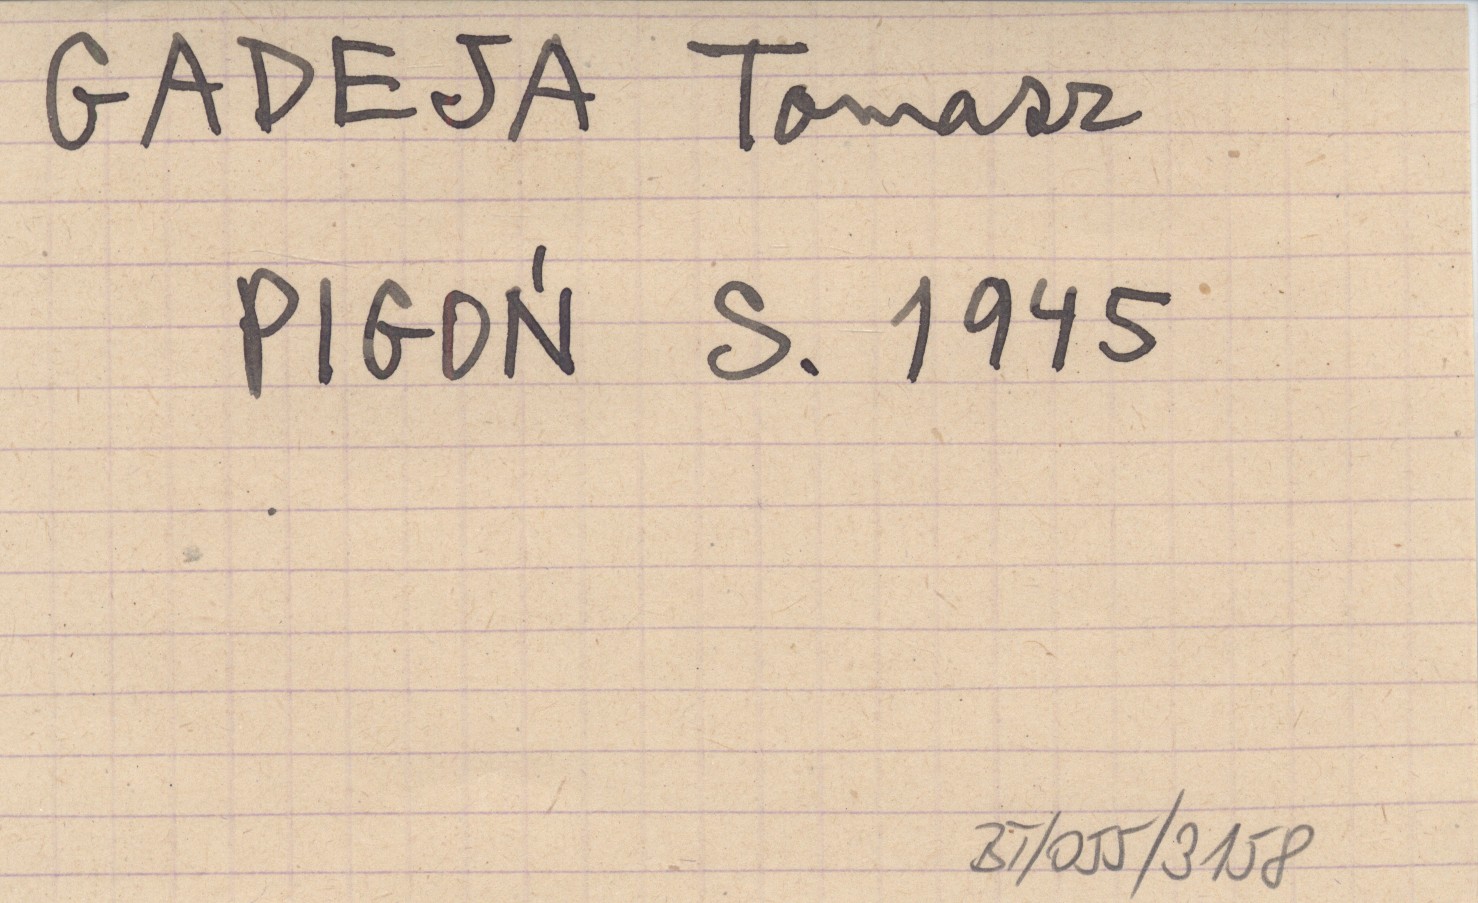 GADEJA Tomasz
PIGOŃ S. 1945
BT/055/3158